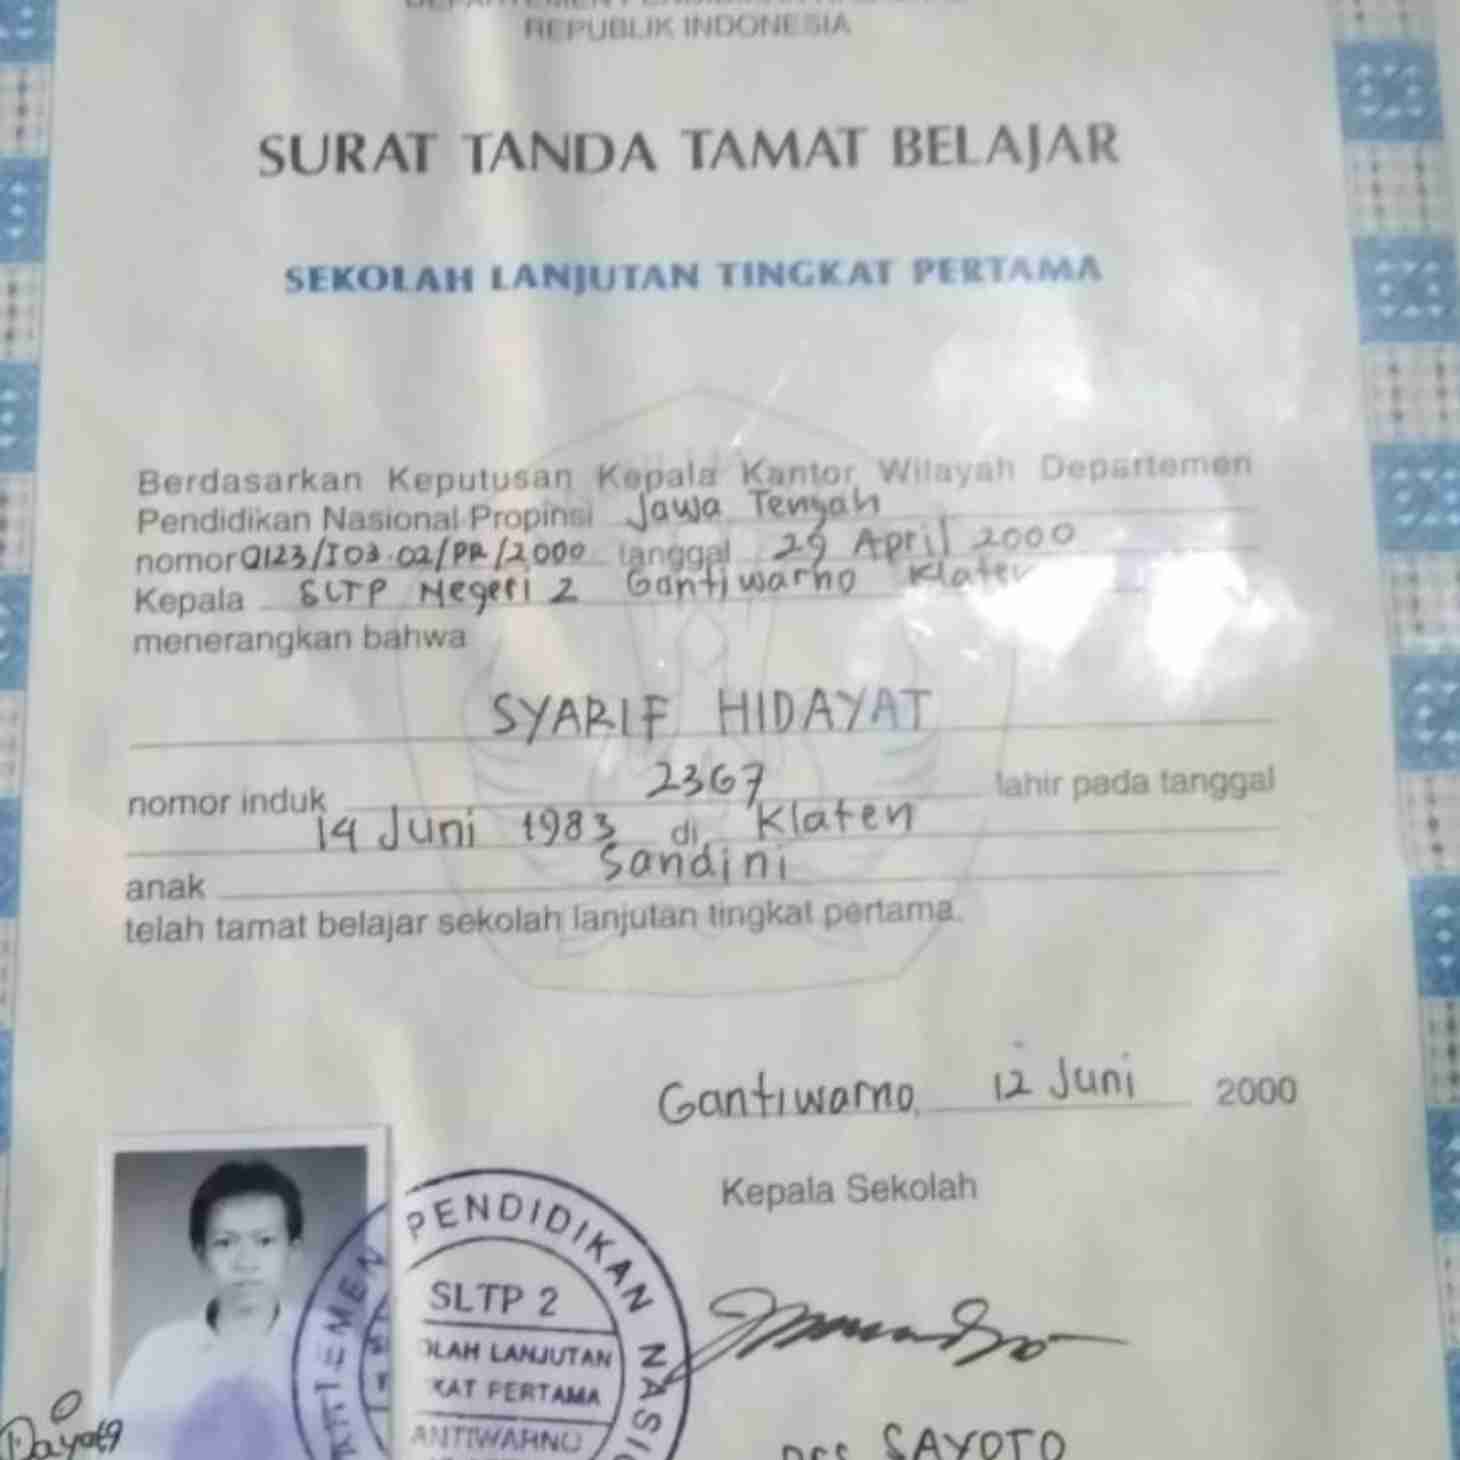 REPUBLIK INDONESIA
SURAT TANDA TAMAT BELAJAR
SEKOLAH LANJUTAN TINGKAT PERTAMA
Berdasarkan Keputusan Kepala Kantor Wilayah Departemen
Pendidikan Nasional Propinsi Jawa Tengah
nomor 0123/I03.02/PR/2000 tanggal 29 April 2000
Kepala SLTP Negeri 2 Gantiwarno Klaten
menerangkan bahwa
SYARIF HIDAYAT
nomor induk 2367 lahir pada tanggal
14 Juni 1983 di Klaten
anak Sandini
telah tamat belajar sekolah lanjutan tingkat pertama.
Gantiwarno, 12 Juni 2000
Kepala Sekolah
PENDIDIKAN NASIO
SLTP 2
OLAH LANJUTAN
KAT PERTAMA
ANTIWARNO
Drs SAYOTO